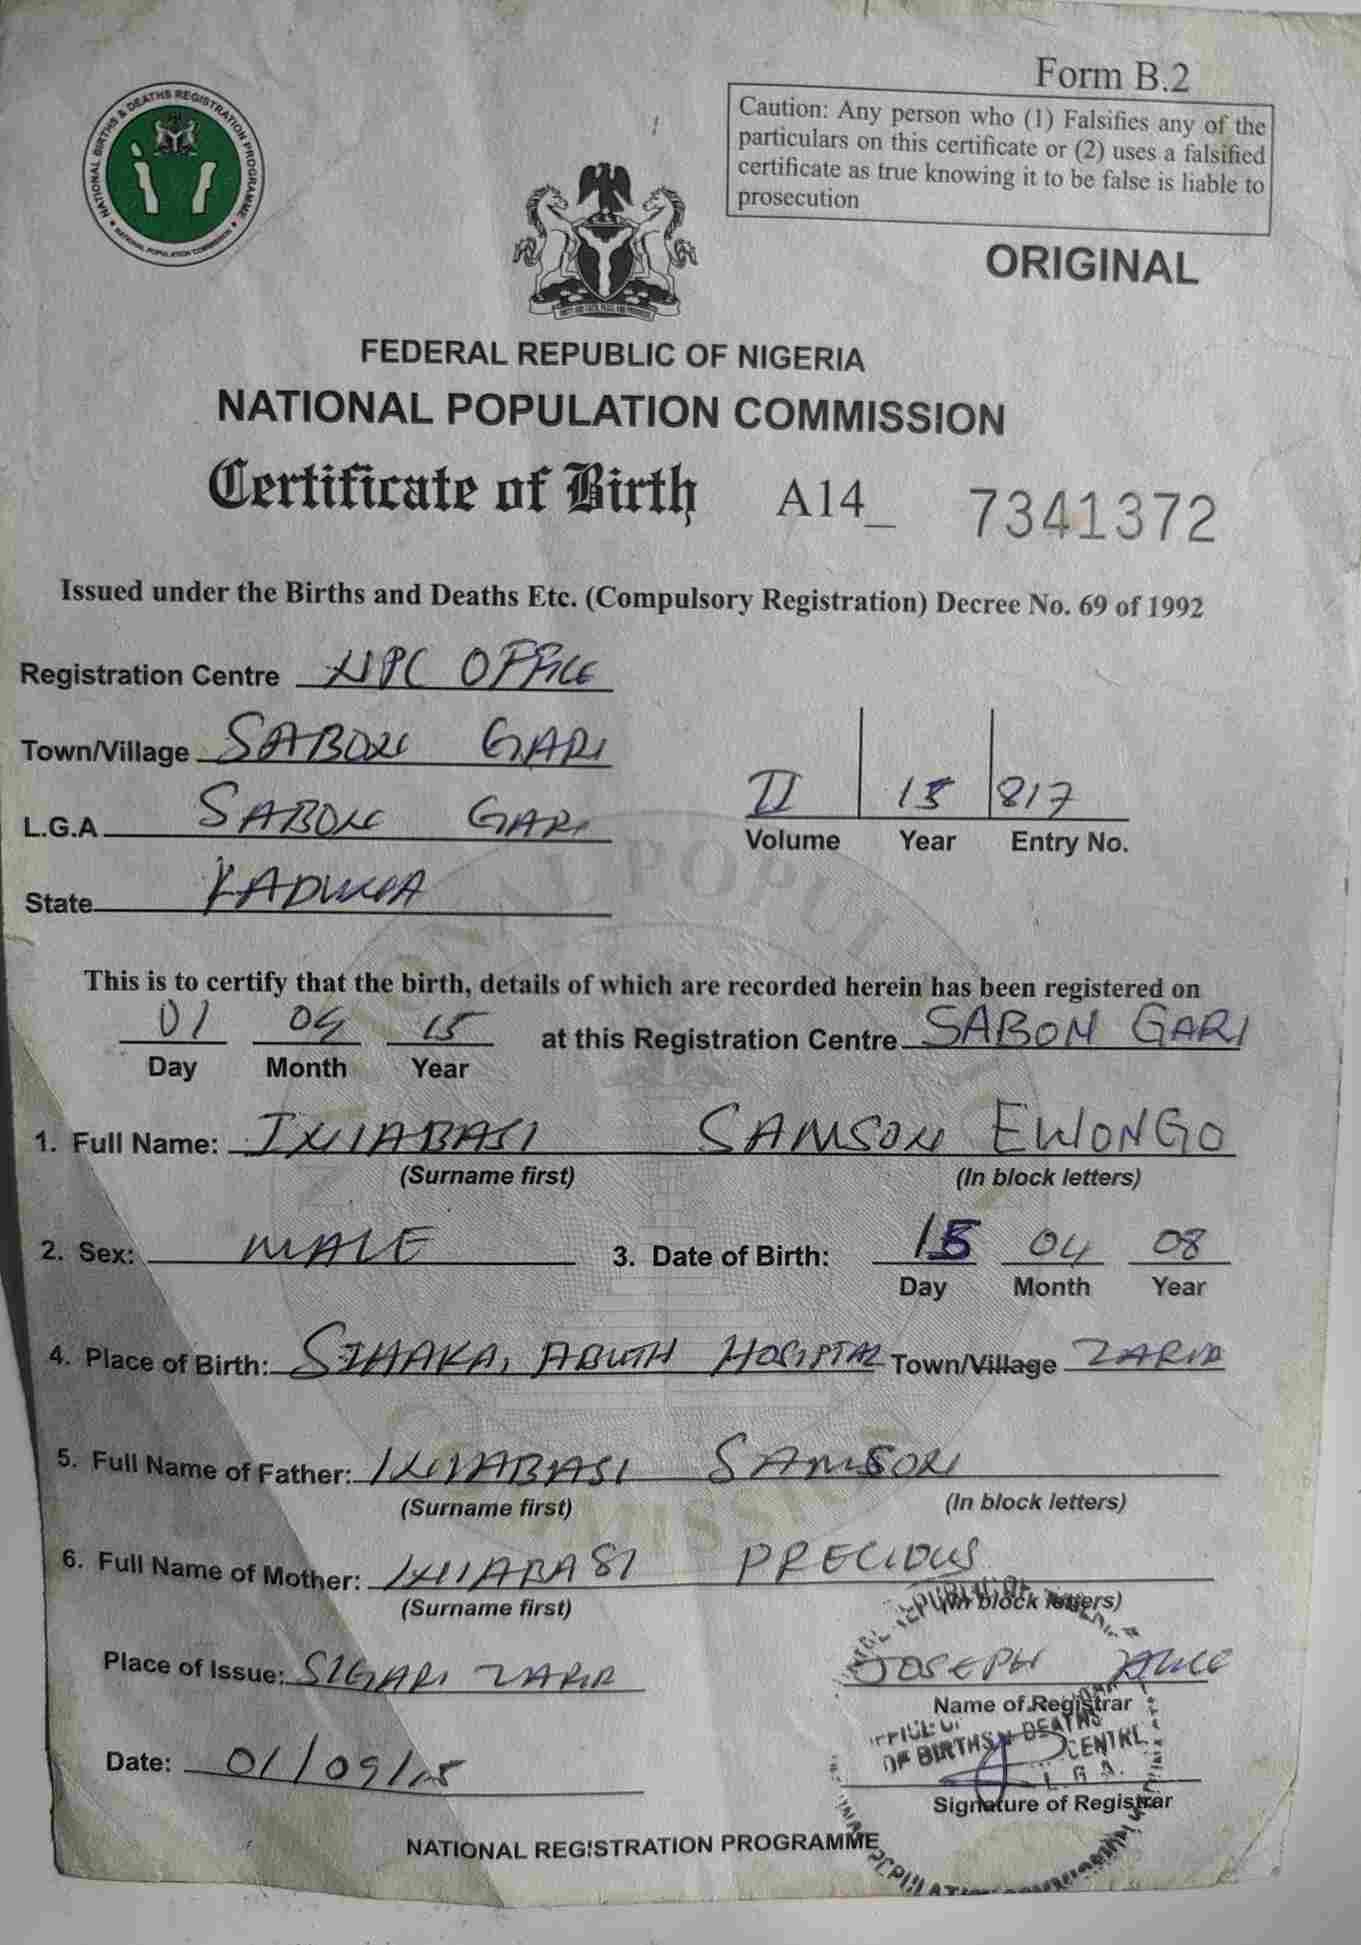 Form B.2
Caution: Any person who (1) Falsifies any of the
particulars on this certificate or (2) uses a falsified
certificate as true knowing it to be false is liable to
prosecution
NATIONAL BIRTHS & DEATHS REGISTRATION PROGRAMME
NATIONAL POPULATION COMMISSION
ORIGINAL
FEDERAL REPUBLIC OF NIGERIA
NATIONAL POPULATION COMMISSION
Certificate of Birth A14_ 7341372
Issued under the Births and Deaths Etc. (Compulsory Registration) Decree No. 69 of 1992
Registration Centre NPC OFFICE
Town/Village SABON GARI
L.G.A SABON GARI
II 15 817
Volume Year Entry No.
State KADUNA
This is to certify that the birth, details of which are recorded herein has been registered on
01 09 15 at this Registration Centre SABON GARI
Day Month Year
1. Full Name: INIABASI SAMSON EWONGO
(Surname first) (In block letters)
2. Sex: MALE 3. Date of Birth: 15 04 08
Day Month Year
4. Place of Birth: SIHAKA, ABUTH HOSIPTAL Town/Village ZARIA
5. Full Name of Father: INIABASI SAMSON
(Surname first) (In block letters)
6. Full Name of Mother: INIABASI PRECIOUS
(Surname first) (In block letters)
Place of Issue: S/GARI ZARIA
JOSEPH
Name of Registrar
OF BIRTHS DEATHS
CENTRE
L.G.A.
Date: 01/09/15
Signature of Registrar
NATIONAL REGISTRATION PROGRAMME